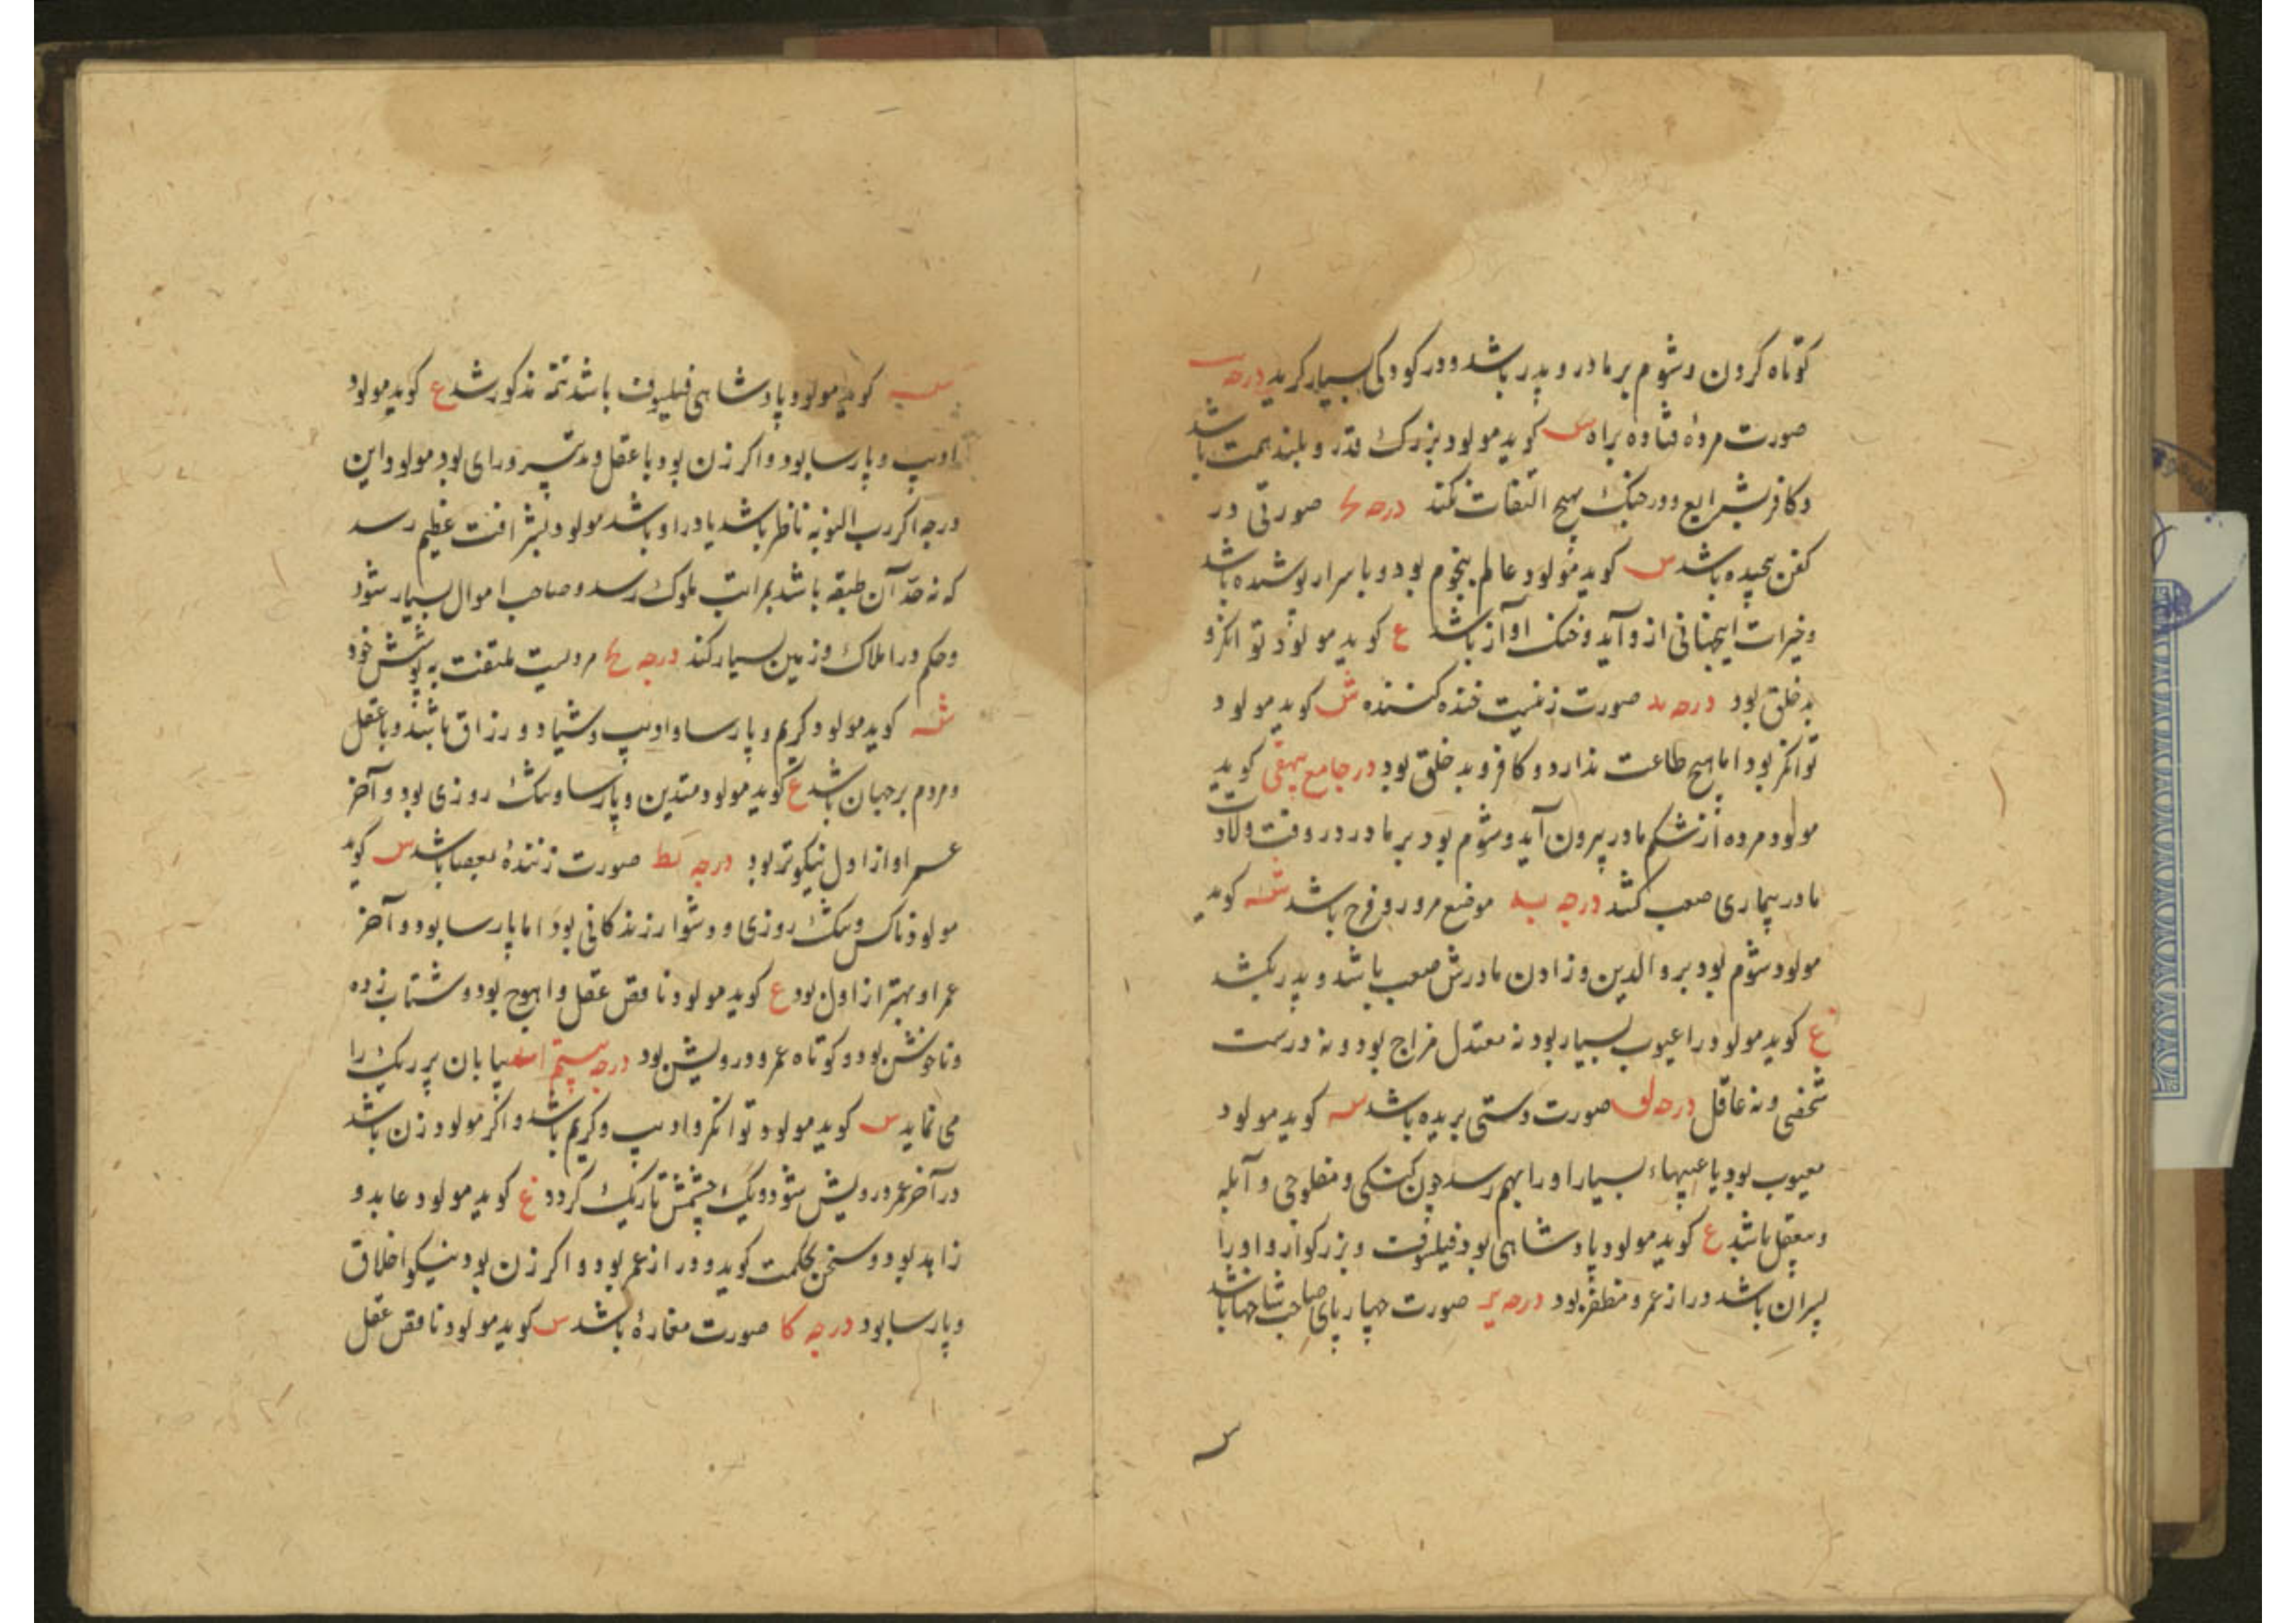 کوتاه کردن و شوم بر مادر و پدر باشد و در کودکی بسیار کرید درجه
صورت مردهٔ فتاده براه س کوید مولود بزرک قدر و بلند همت باشد
و کافر بشرایع و در جنک هیچ التفات نکند درجه صورتی در
کفن پیچیده باشد س کوید مولود عالم بنجوم بود و باسرار پوشیده باشد
و خیرات اینجهانی از و آید و خنک آواز باشد ع کوید مولود توانکر و
بد خلق بود درجه ید صورت زنیست خنده کننده ش کوید مولود
توانکر بود اما هیچ طاعت ندارد و کافر و بد خلق بود در جامع بیهقی کوید
مولود مرده از شکم مادر بیرون آید و شوم بود بر مادر در وقت ولادت
مادر بیماری صعب کشد درجه یه موضع مرور و فرج باشد شه کوید
مولود شوم بود بر والدین و زادن مادرش صعب باشد و پدر بکشد
ع کوید مولود را عیوب بسیار بود نه معتدل مزاج بود و نه درست
شخصی و نه عاقل درجه یو صورت دستی بریده باشد سه کوید مولود
معیوب بود یا عیبهاء بسیار او را بهم رسد چون کنکی و مفلوجی و آبله
و معقل باشد ع کوید مولود پادشاهی بود فیلسوف و بزرکوار و او را
پسران باشد دراز عمر و مظفر بود درجه یز صورت چهار پای صاحب شاخها باشد
س
سه کوید مولود پادشاهی فیلسوف باشد تتمه مذکور شد ع کوید مولود
ادیب و پارسا بود و اکر زن بود با عقل و تدبیر و رای بود مولود این
درجه اکر رب النوبه ناظر باشد یا در او باشد مولود بشرافت عظیم رسد
که نه حد آن طبقه باشد بمراتب ملوک رسد و صاحب اموال بسیار شود
و حکم در املاک و زمین بسیار کند درجه یح مردیست ملتفت به پوشش خود
شه کوید مولود کریم و پارسا و ادیب و شیاد و رزاق باشد و با عقل
و مردم بر جهان باشد ع کوید مولود متدین و پارسا و تنک روزی بود و آخر
عمر او از اول نیکوتر بود درجه یط صورت زنندهٔ بعصا باشد س کوید
مولود ناکس و تنک روزی و دشوار زندکانی بود اما پارسا بود و آخر
عمر او بهتر از اول بود ع کوید مولود ناقص عقل و اهوج بود و شتاب زده
و ناخوش بود و کوتاه عمر و درویش بود درجه بیستم اسد بیابان پر ریک را
می نماید س کوید مولود توانکر و ادیب و کریم باشد و اکر مولود زن باشد
در آخر عمر درویش شود و یک چشمش تاریک کردد ع کوید مولود عابد و
زاهد بود و سخن بحکمت کوید و دراز عمر بود و اکر زن بود نیکو اخلاق
و پارسا بود درجه کا صورت مغارهٔ باشد س کوید مولود ناقص عقل